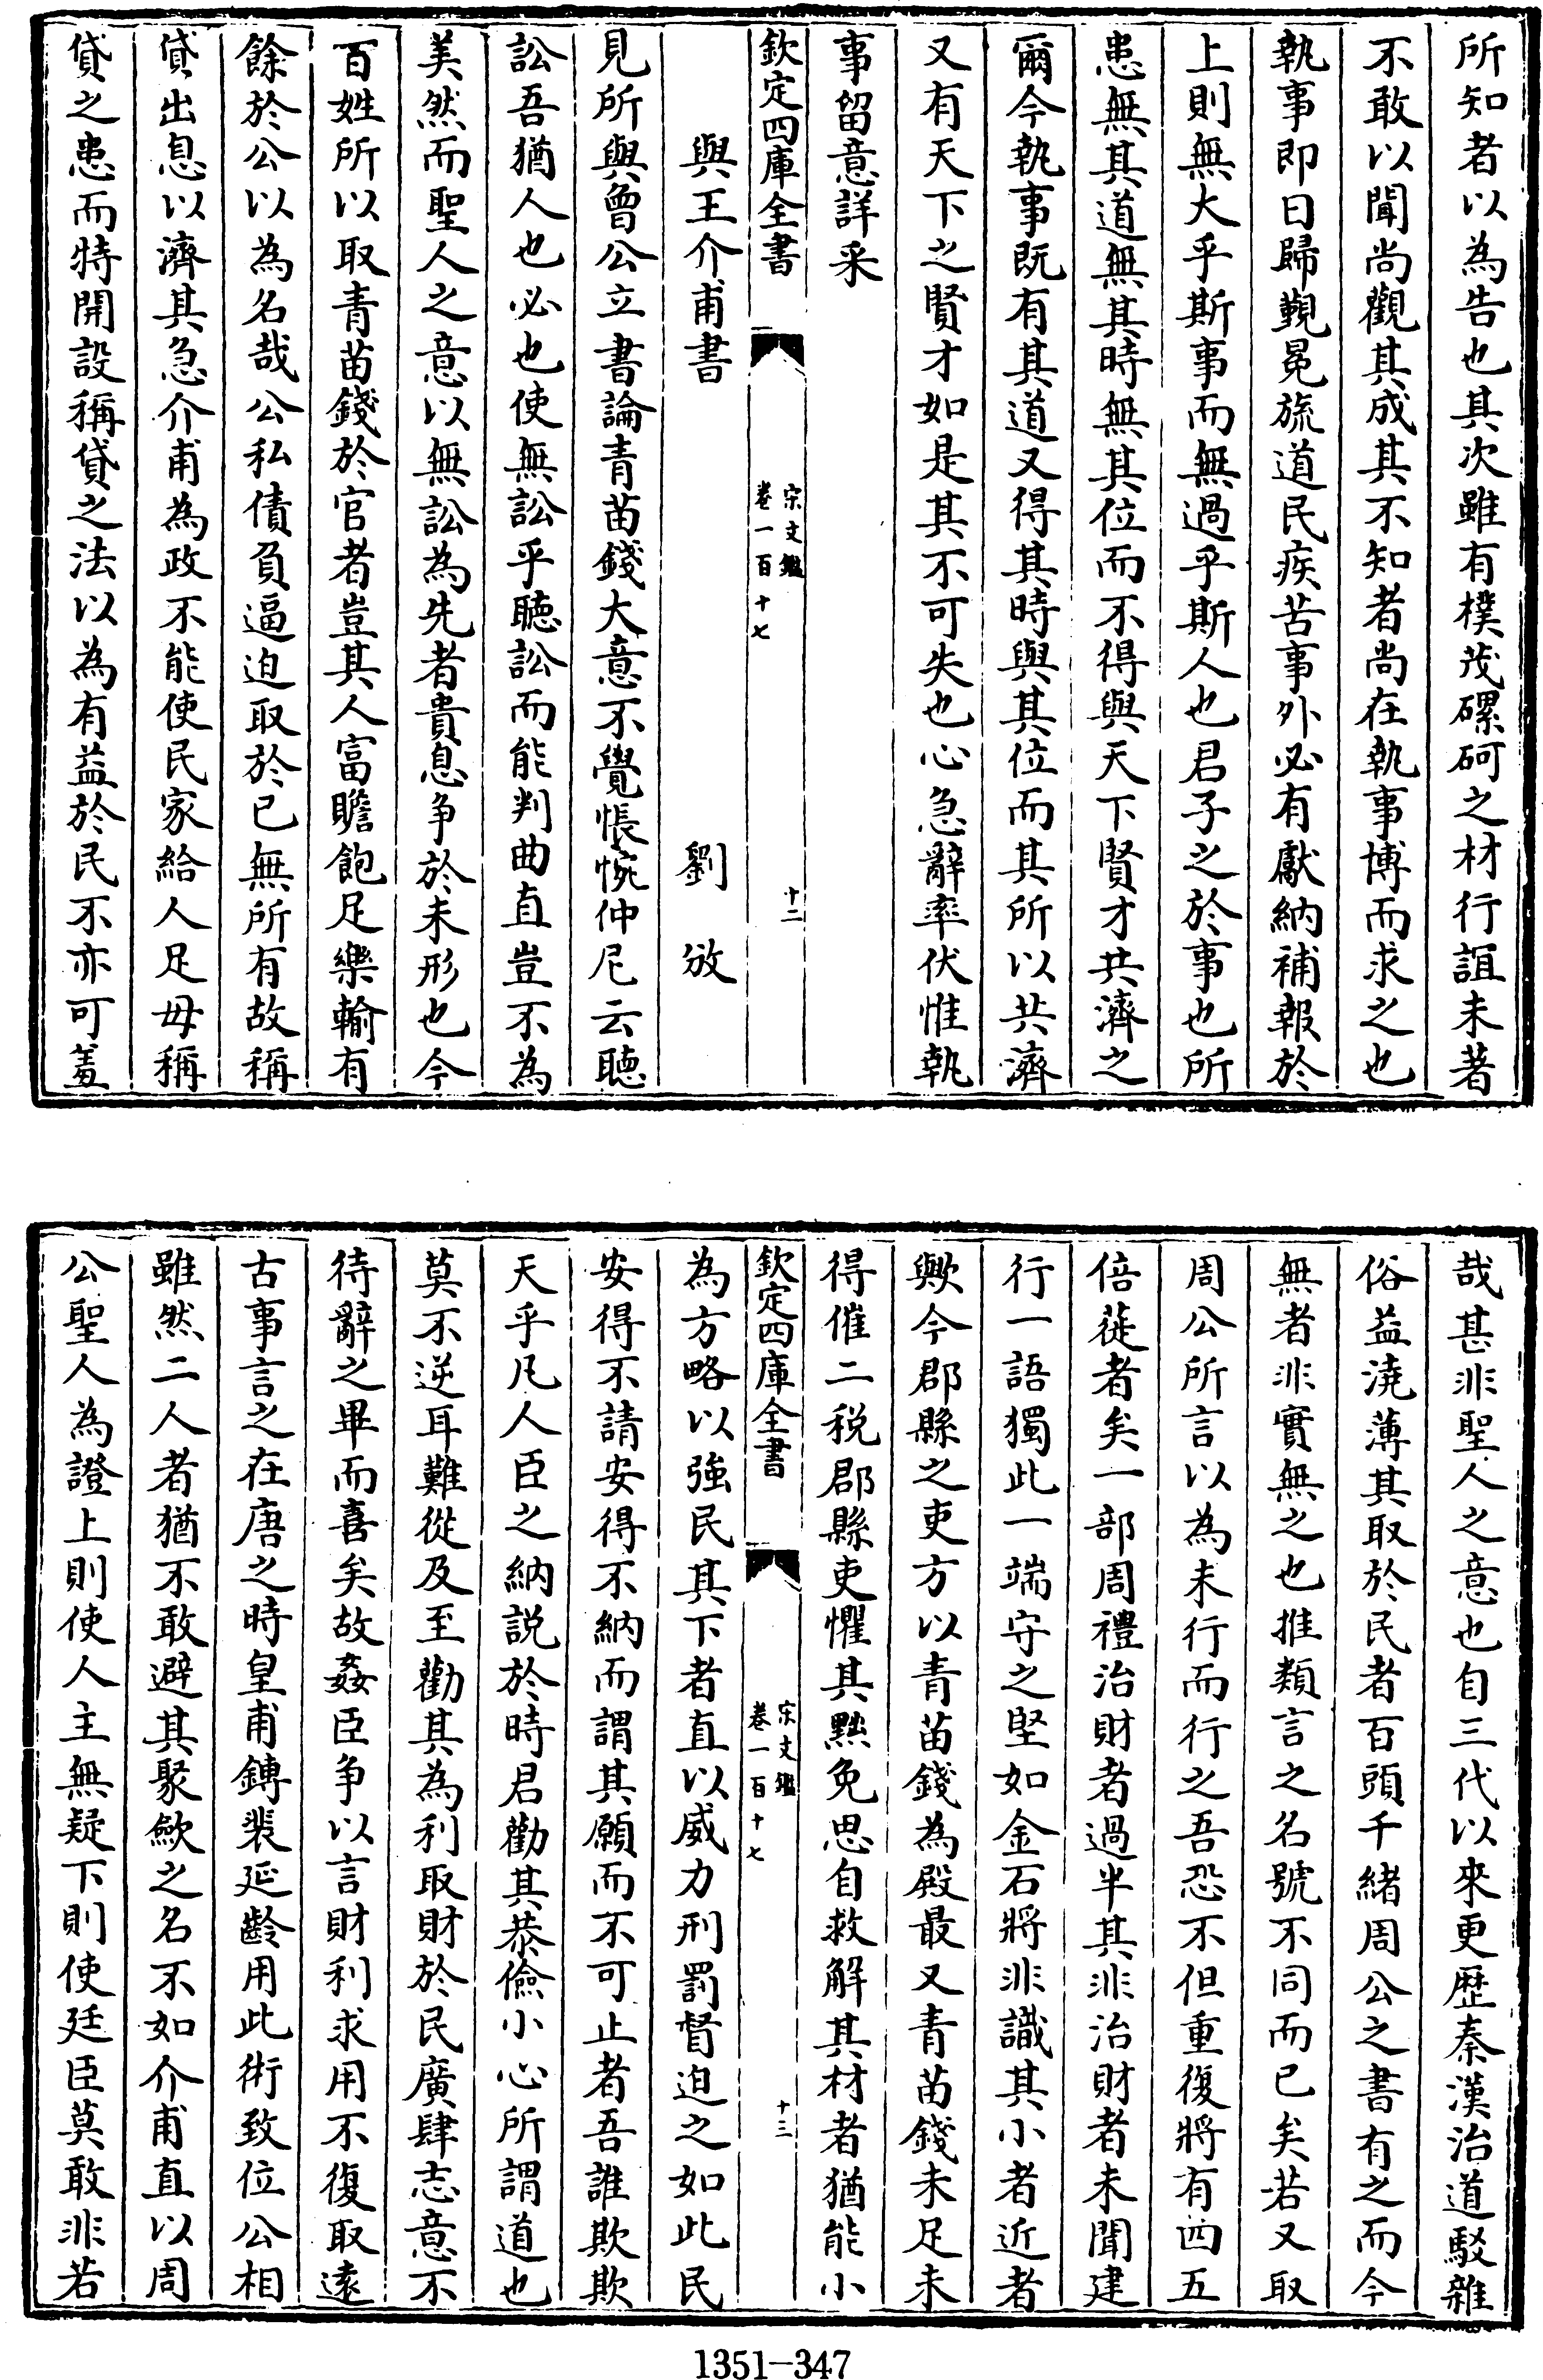 所知者以為告也其次雖有樸茂磥砢之材行誼未著
不敢以聞尚觀其成其不知者尚在執事博而求之也
執事即日歸覲冕旒道民疾苦事外必有獻納補報於
上則無大乎斯事而無過乎斯人也君子之於事也所
患無其道無其時無其位而不得與天下賢才共濟之
爾今執事既有其道又得其時與其位而其所以共濟
又有天下之賢才如是其不可失也心急辭率伏惟執
事留意詳采
欽定四庫全書
宋文鑑
卷一百十七
十二
與王介甫書
劉攽
見所與曾公立書論青苗錢大意不覺悵惋仲尼云聽
訟吾猶人也必也使無訟乎聽訟而能判曲直豈不為
美然而聖人之意以無訟為先者貴息争於未形也今
百姓所以取青苗錢於官者豈其人富贍飽足樂輸有
餘於公以為名哉公私債負逼迫取於已無所有故稱
貸出息以濟其急介甫為政不能使民家給人足毋稱
貸之患而特開設稱貸之法以為有益於民不亦可羞
哉甚非聖人之意也自三代以來更歴秦漢治道駁雜
俗益澆薄其取於民者百頭千緒周公之書有之而今
無者非實無之也推類言之名號不同而已矣若又取
周公所言以為未行而行之吾恐不但重復將有四五
倍蓰者矣一部周禮治財者過半其非治財者未聞建
行一語獨此一端守之堅如金石將非識其小者近者
歟今郡縣之吏方以青苗錢為殿最又青苗錢未足未
得催二税郡縣吏懼其黜免思自救解其材者猶能小
欽定四庫全書
宋文鑑
卷一百十七
十三
為方略以強民其下者直以威力刑罰督迫之如此民
安得不請安得不納而謂其願而不可止者吾誰欺欺
天乎凡人臣之納説於時君勸其恭儉小心所謂道也
莫不逆耳難從及至勸其為利取財於民廣肆志意不
待辭之畢而喜矣故姦臣争以言財利求用不復取遠
古事言之在唐之時皇甫鎛裴延齡用此術致位公相
雖然二人者猶不敢避其聚歛之名不如介甫直以周
公聖人為證上則使人主無疑下則使廷臣莫敢非若
1351-347